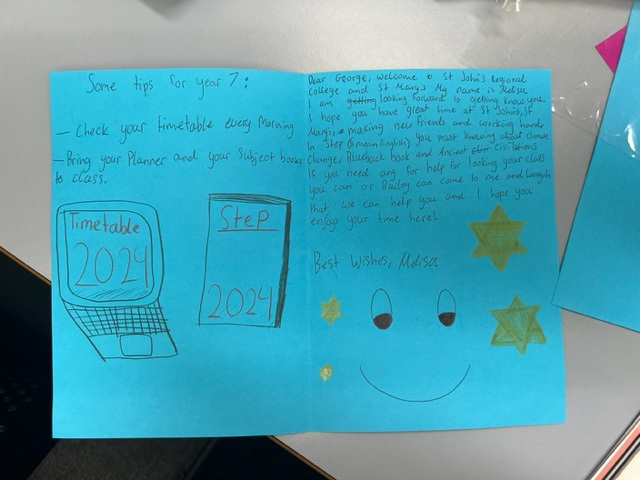 Some tips for year 7:
- Check your timetable every Morning
- Bring your Planner and your Subject books
to class.
Timetable
2024
SteP
2024
Dear George, welcome to St John's Regional
College and St Mary's My name is Melisa
I am getting looking forward to getting know you.
I hope you have great time at St Johns, St
making new friends and working hard
In Step (Domain English) you must knowing about climate
Change, Blueback book and Ancient Civilations
If you need any for help for looking your class
you can or Bailey can come to me and
that we can help you and I hope you
enjoy your time here!
Best Wishes, Melisa